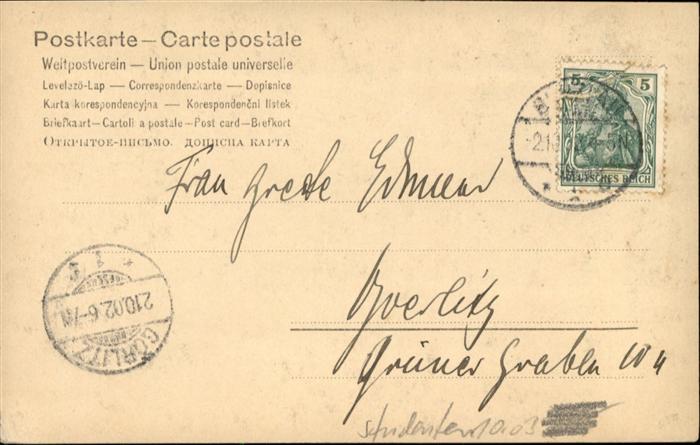 Postkarte — Carte postale
Weltpostverein — Union postale universelle
Levelező-Lap — Correspondenzkarte — Dopisnice
Karta korespondencyjna — Korespondenční lístek
Briefkaart — Cartoli a postale — Post card — Brefkort
Открытое-письмо. дописна карта
5 5
DEUTSCHES REICH
Frau Grete
Goerlitz
Grüner Graben 10
2.10.02.6-7N.
GÖRLITZ